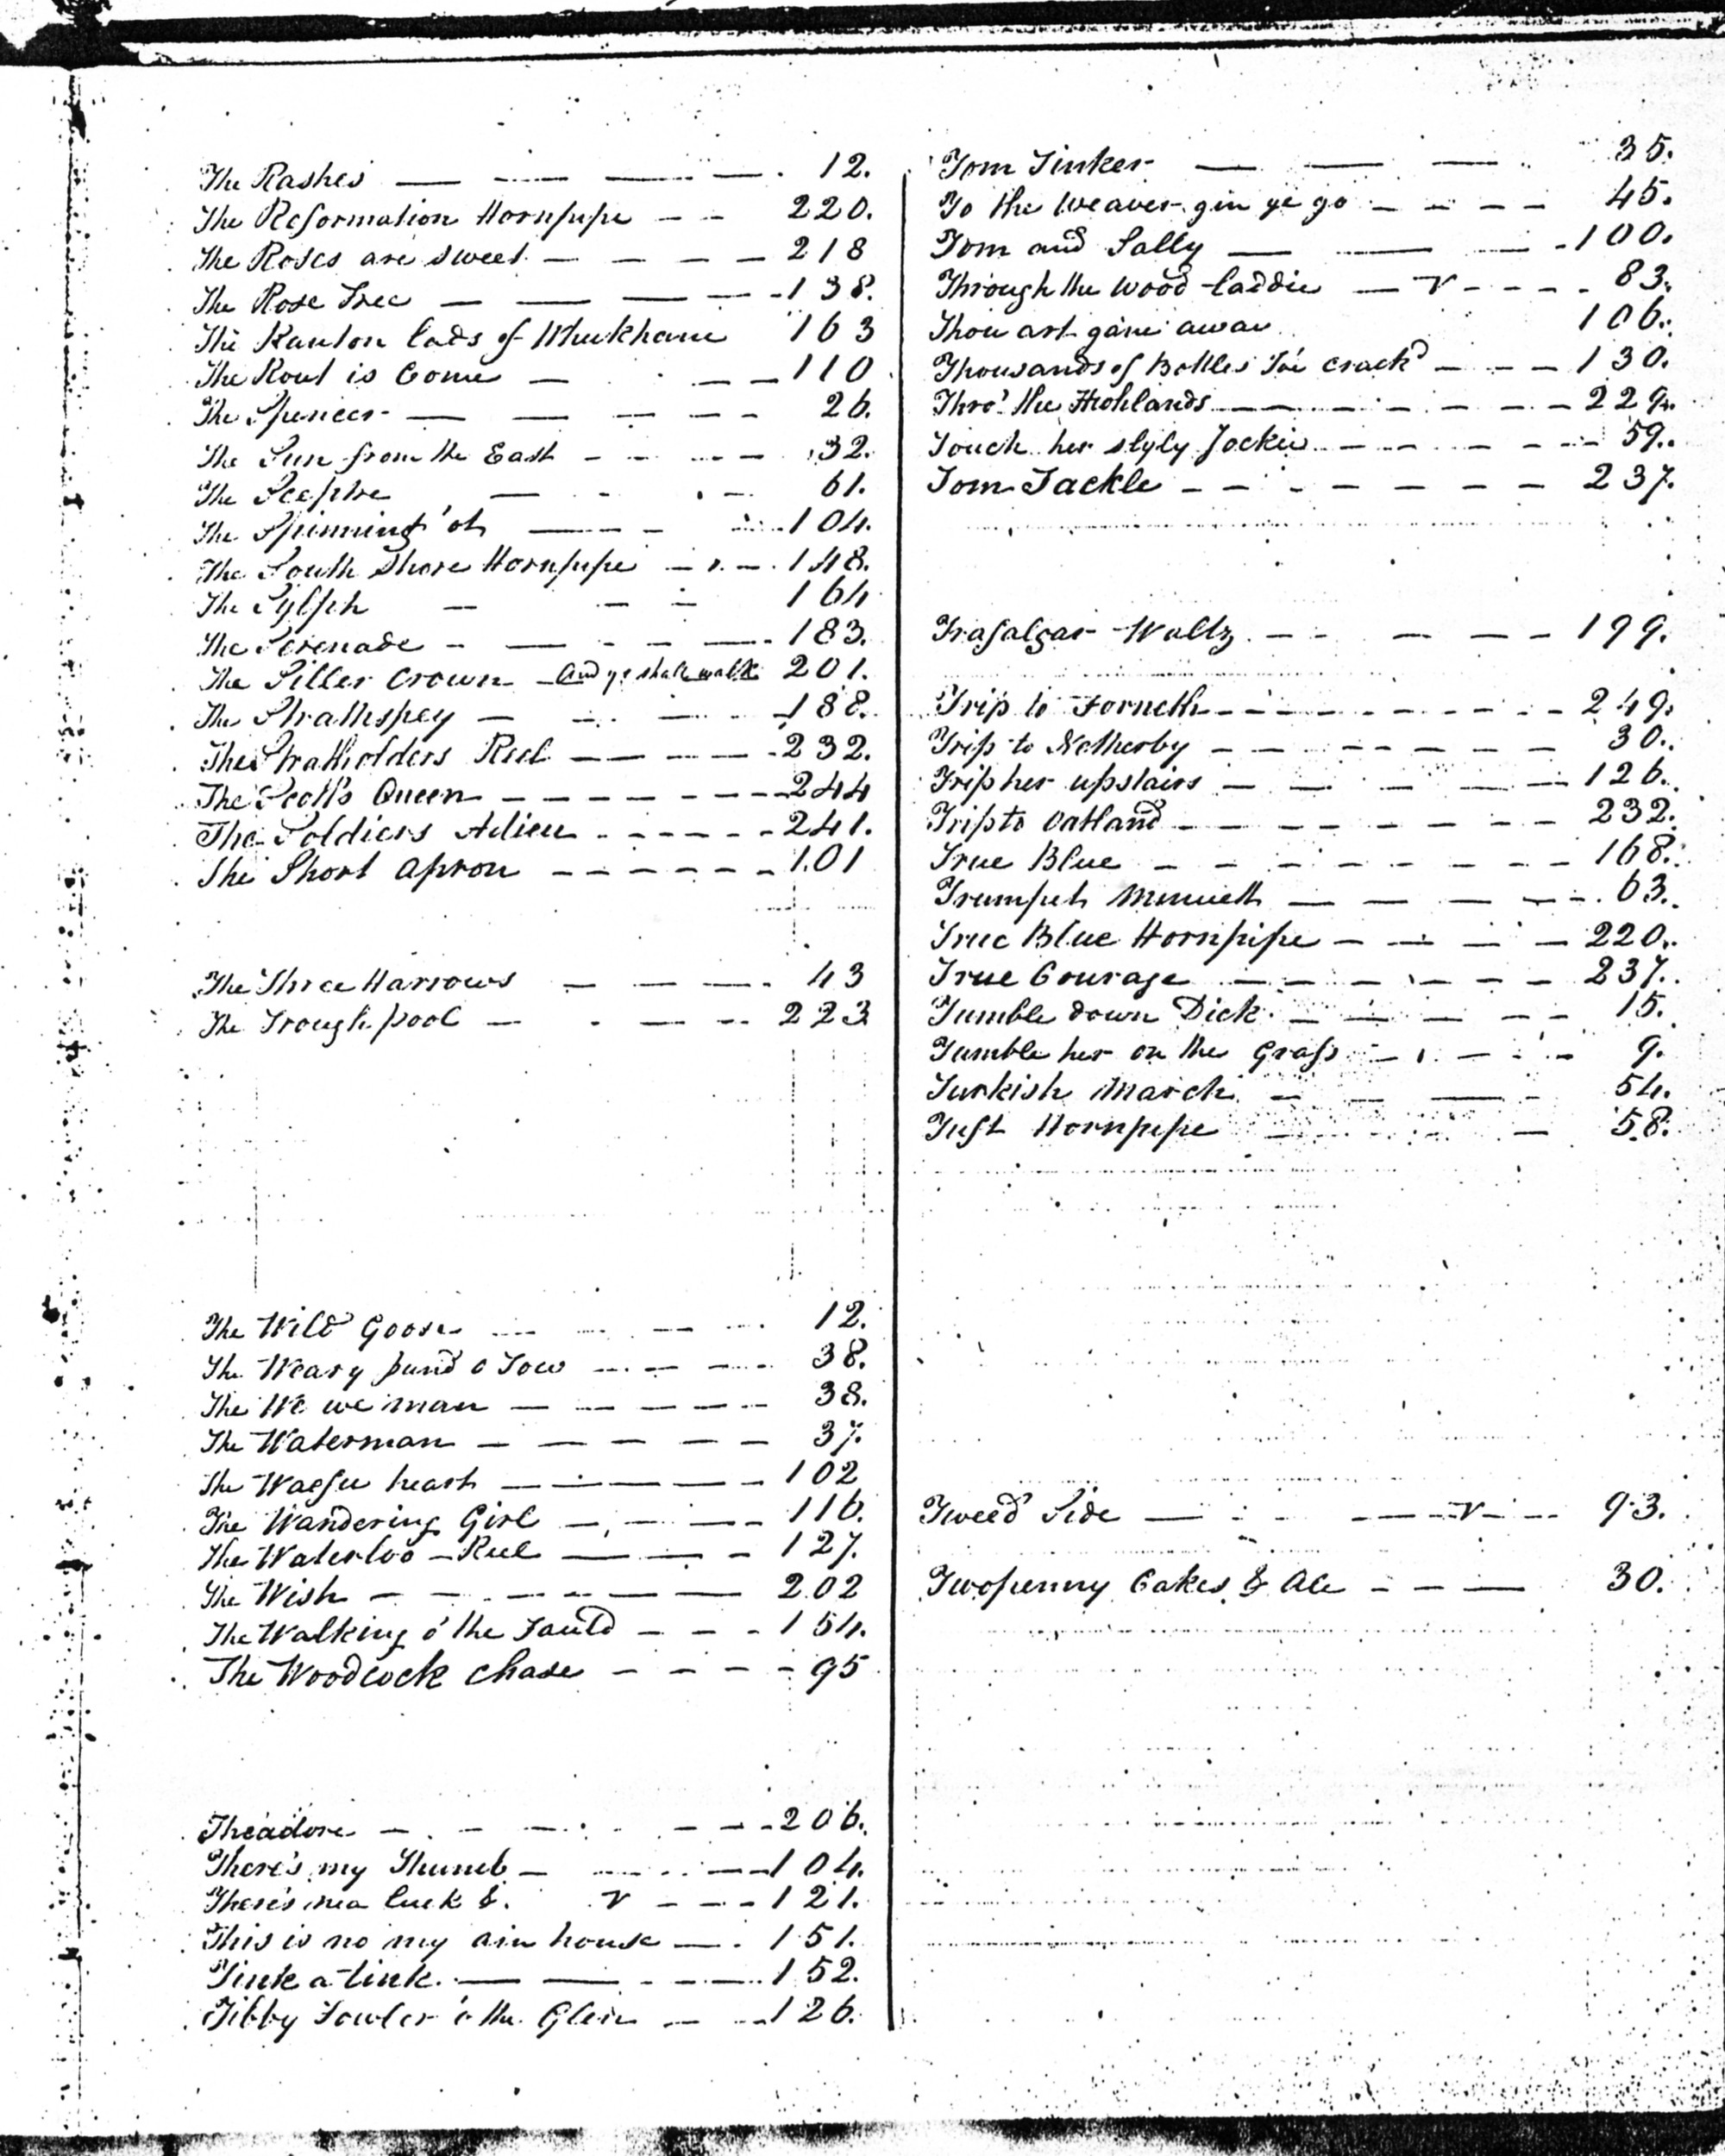 The Rashes 12.
The Reformation Hornpipe 220.
The Roses are Sweet 218
The Rose Tree 138.
The Ranton lads of Whickham 163
The Rout is Come 110
The Spencer 26.
The Sun from the East 32.
The Sceptre 61.
The Spinning o't 104.
The South Shore Hornpipe 148.
The Sylph 164
The Serenade 183.
The Siller Crown And ye shall walk 201.
The Strathspey 188.
The Stratholders Reel 232.
The Scott's Queen 244
The Soldiers Adieu 241.
The Short apron 101
The Three Harrows 43
The Trough pool 223
The Wild Goose 12.
The Weary pund o Tow 38.
The We we man 38.
The Waterman 37.
The Waefu heart 102
The Wandering Girl 116.
The Waterloo Reel 127.
The Wish 202
The Walking o' the Fauld 154.
The Woodcock chase 95
Theadore 206.
There's my Thumb 104.
There's nea luck &. V 121.
This is no my ain house 151.
Tink a tink 152.
Tibby Fowler o' the Glen 126.
Tom Tinker 35.
To the Weaver gin ye go 45.
Tom and Sally 100.
Through the wood laddie V 83.
Thou art gane awa 106.
Thousands of Bottles I've crack'd 130.
Thro' the Highlands 229.
Touch her slyly Jockie 59.
Tom Tackle 237.
Trafalgar Waltz 199.
Trip to Forneth 249.
Trip to Netherby 30.
Trip her upstairs 126.
Trip to Oatland 232.
True Blue 168.
Trumpet Minuett 63.
True Blue Hornpipe 220.
True Courage 237.
Tumble down Dick 15.
Tumble her on the Grass 9.
Turkish March 54.
Tuft Hornpipe 58.
Tweed Side V 93.
Twopenny Cakes & Ale 30.